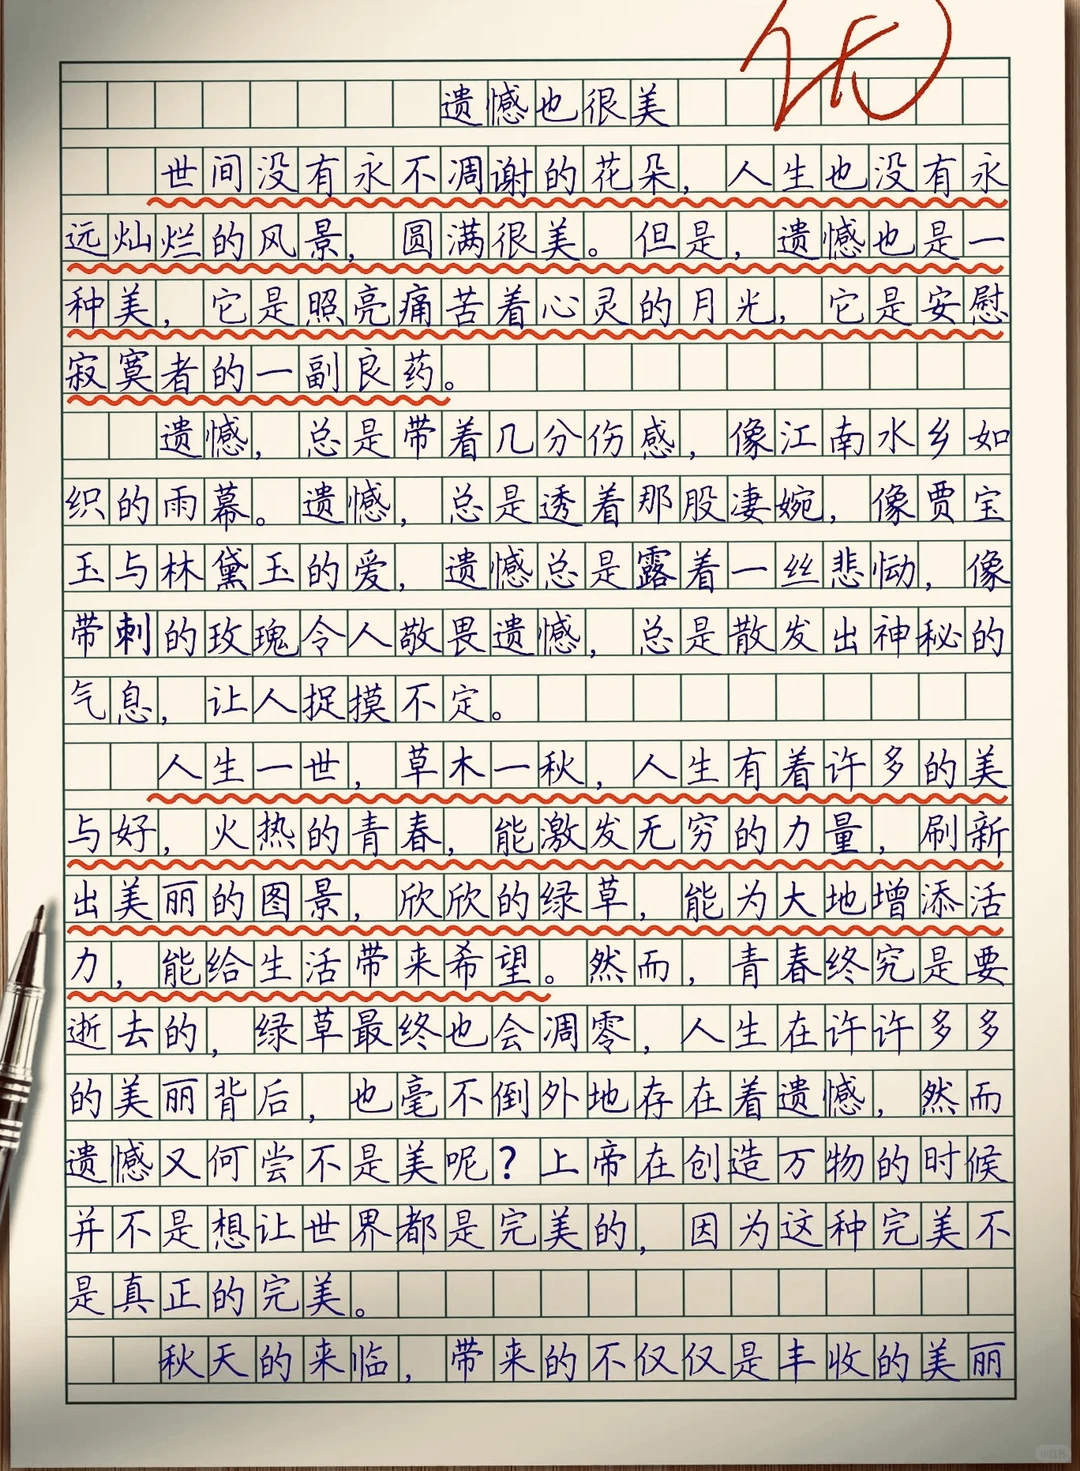 优
遗憾也很美
世间没有永不凋谢的花朵，人生也没有永
远灿烂的风景，圆满很美。但是，遗憾也是一
种美，它是照亮痛苦着心灵的月光，它是安慰
寂寞者的一副良药。
遗憾，总是带着几分伤感，像江南水乡如
织的雨幕。遗憾，总是透着那股凄婉，像贾宝
玉与林黛玉的爱，遗憾总是露着一丝悲恸，像
带刺的玫瑰令人敬畏遗憾，总是散发出神秘的
气息，让人捉摸不定。
人生一世，草木一秋，人生有着许多的美
与好，火热的青春，能激发无穷的力量，刷新
出美丽的图景，欣欣的绿草，能为大地增添活
力，能给生活带来希望。然而，青春终究是要
逝去的，绿草最终也会凋零，人生在许许多多
的美丽背后，也毫不倒外地存在着遗憾，然而
遗憾又何尝不是美呢？上帝在创造万物的时候
并不是想让世界都是完美的，因为这种完美不
是真正的完美。
秋天的来临，带来的不仅仅是丰收的美丽
小红书